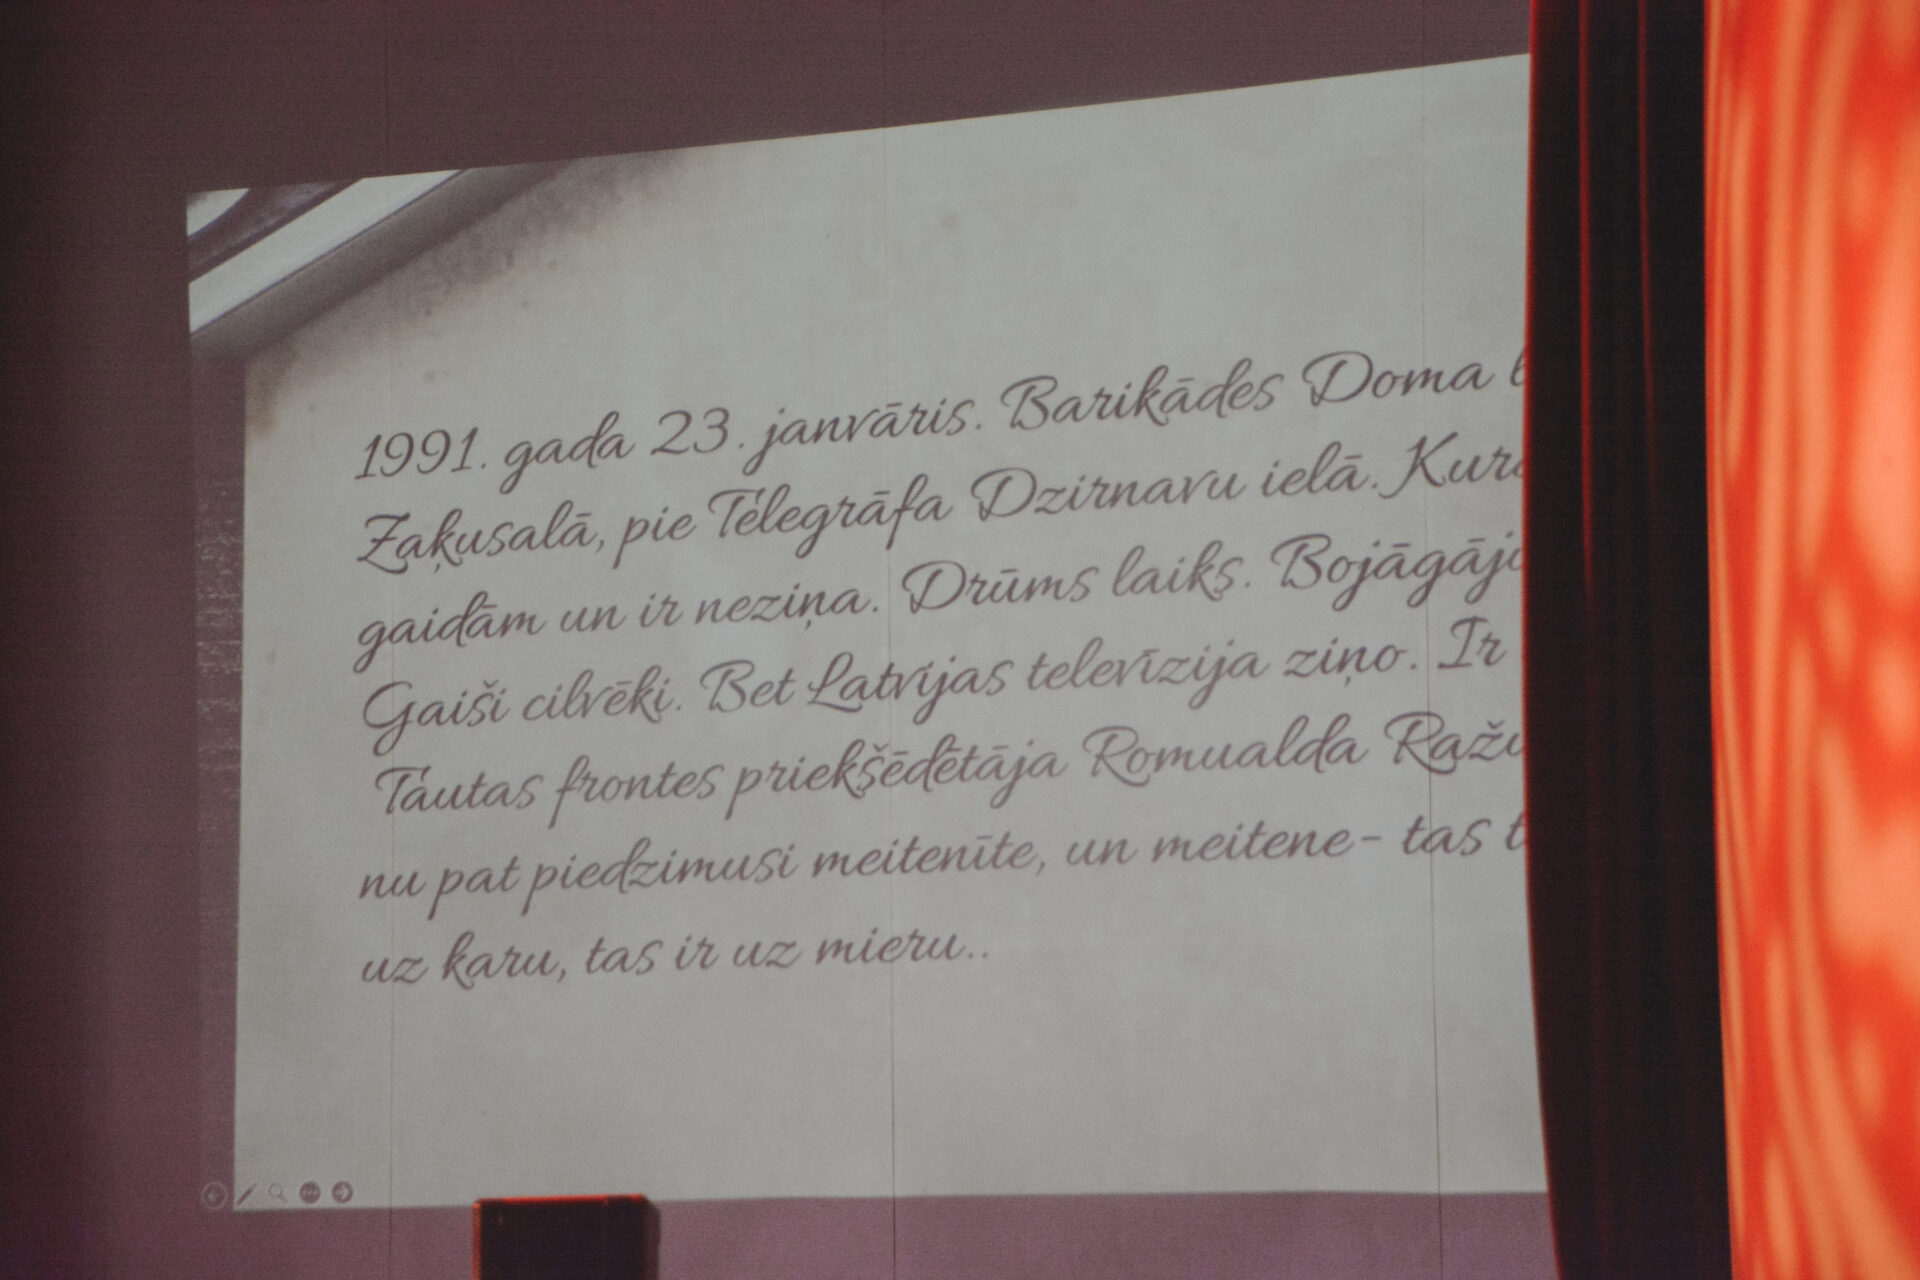 1991. gada 23. janvāris. Barikādes Doma
Zaķusalā, pie Telegrāfa Dzirnavu ielā.
gaidām un ir neziņa. Drūms laiks.
Gaiši cilvēki. Bet Latvijas televīzija ziņo. Ir
Tautas frontes priekšēdētāja Romualda
nu pat piedzimusi meitenīte, un meitene- tas
uz karu, tas ir uz mieru..